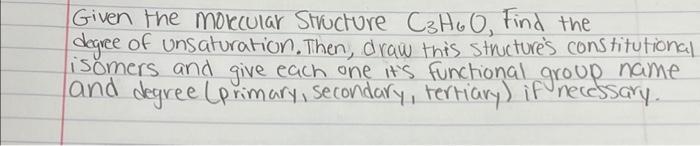 Given the molecular Structure C3H6O, Find the
degree of unsaturation. Then, draw this structure's constitutional
isomers and give each one it's functional group name
and degree (primary, secondary, tertiary) if necessary.